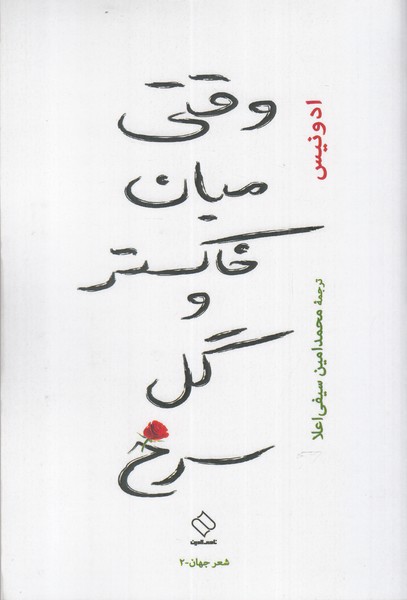 ادونیس
وقتی
میان
خاکستر
و
گل
سرخ
ترجمهٔ محمدامین سیفی‌اعلا
شعر جهان-۲